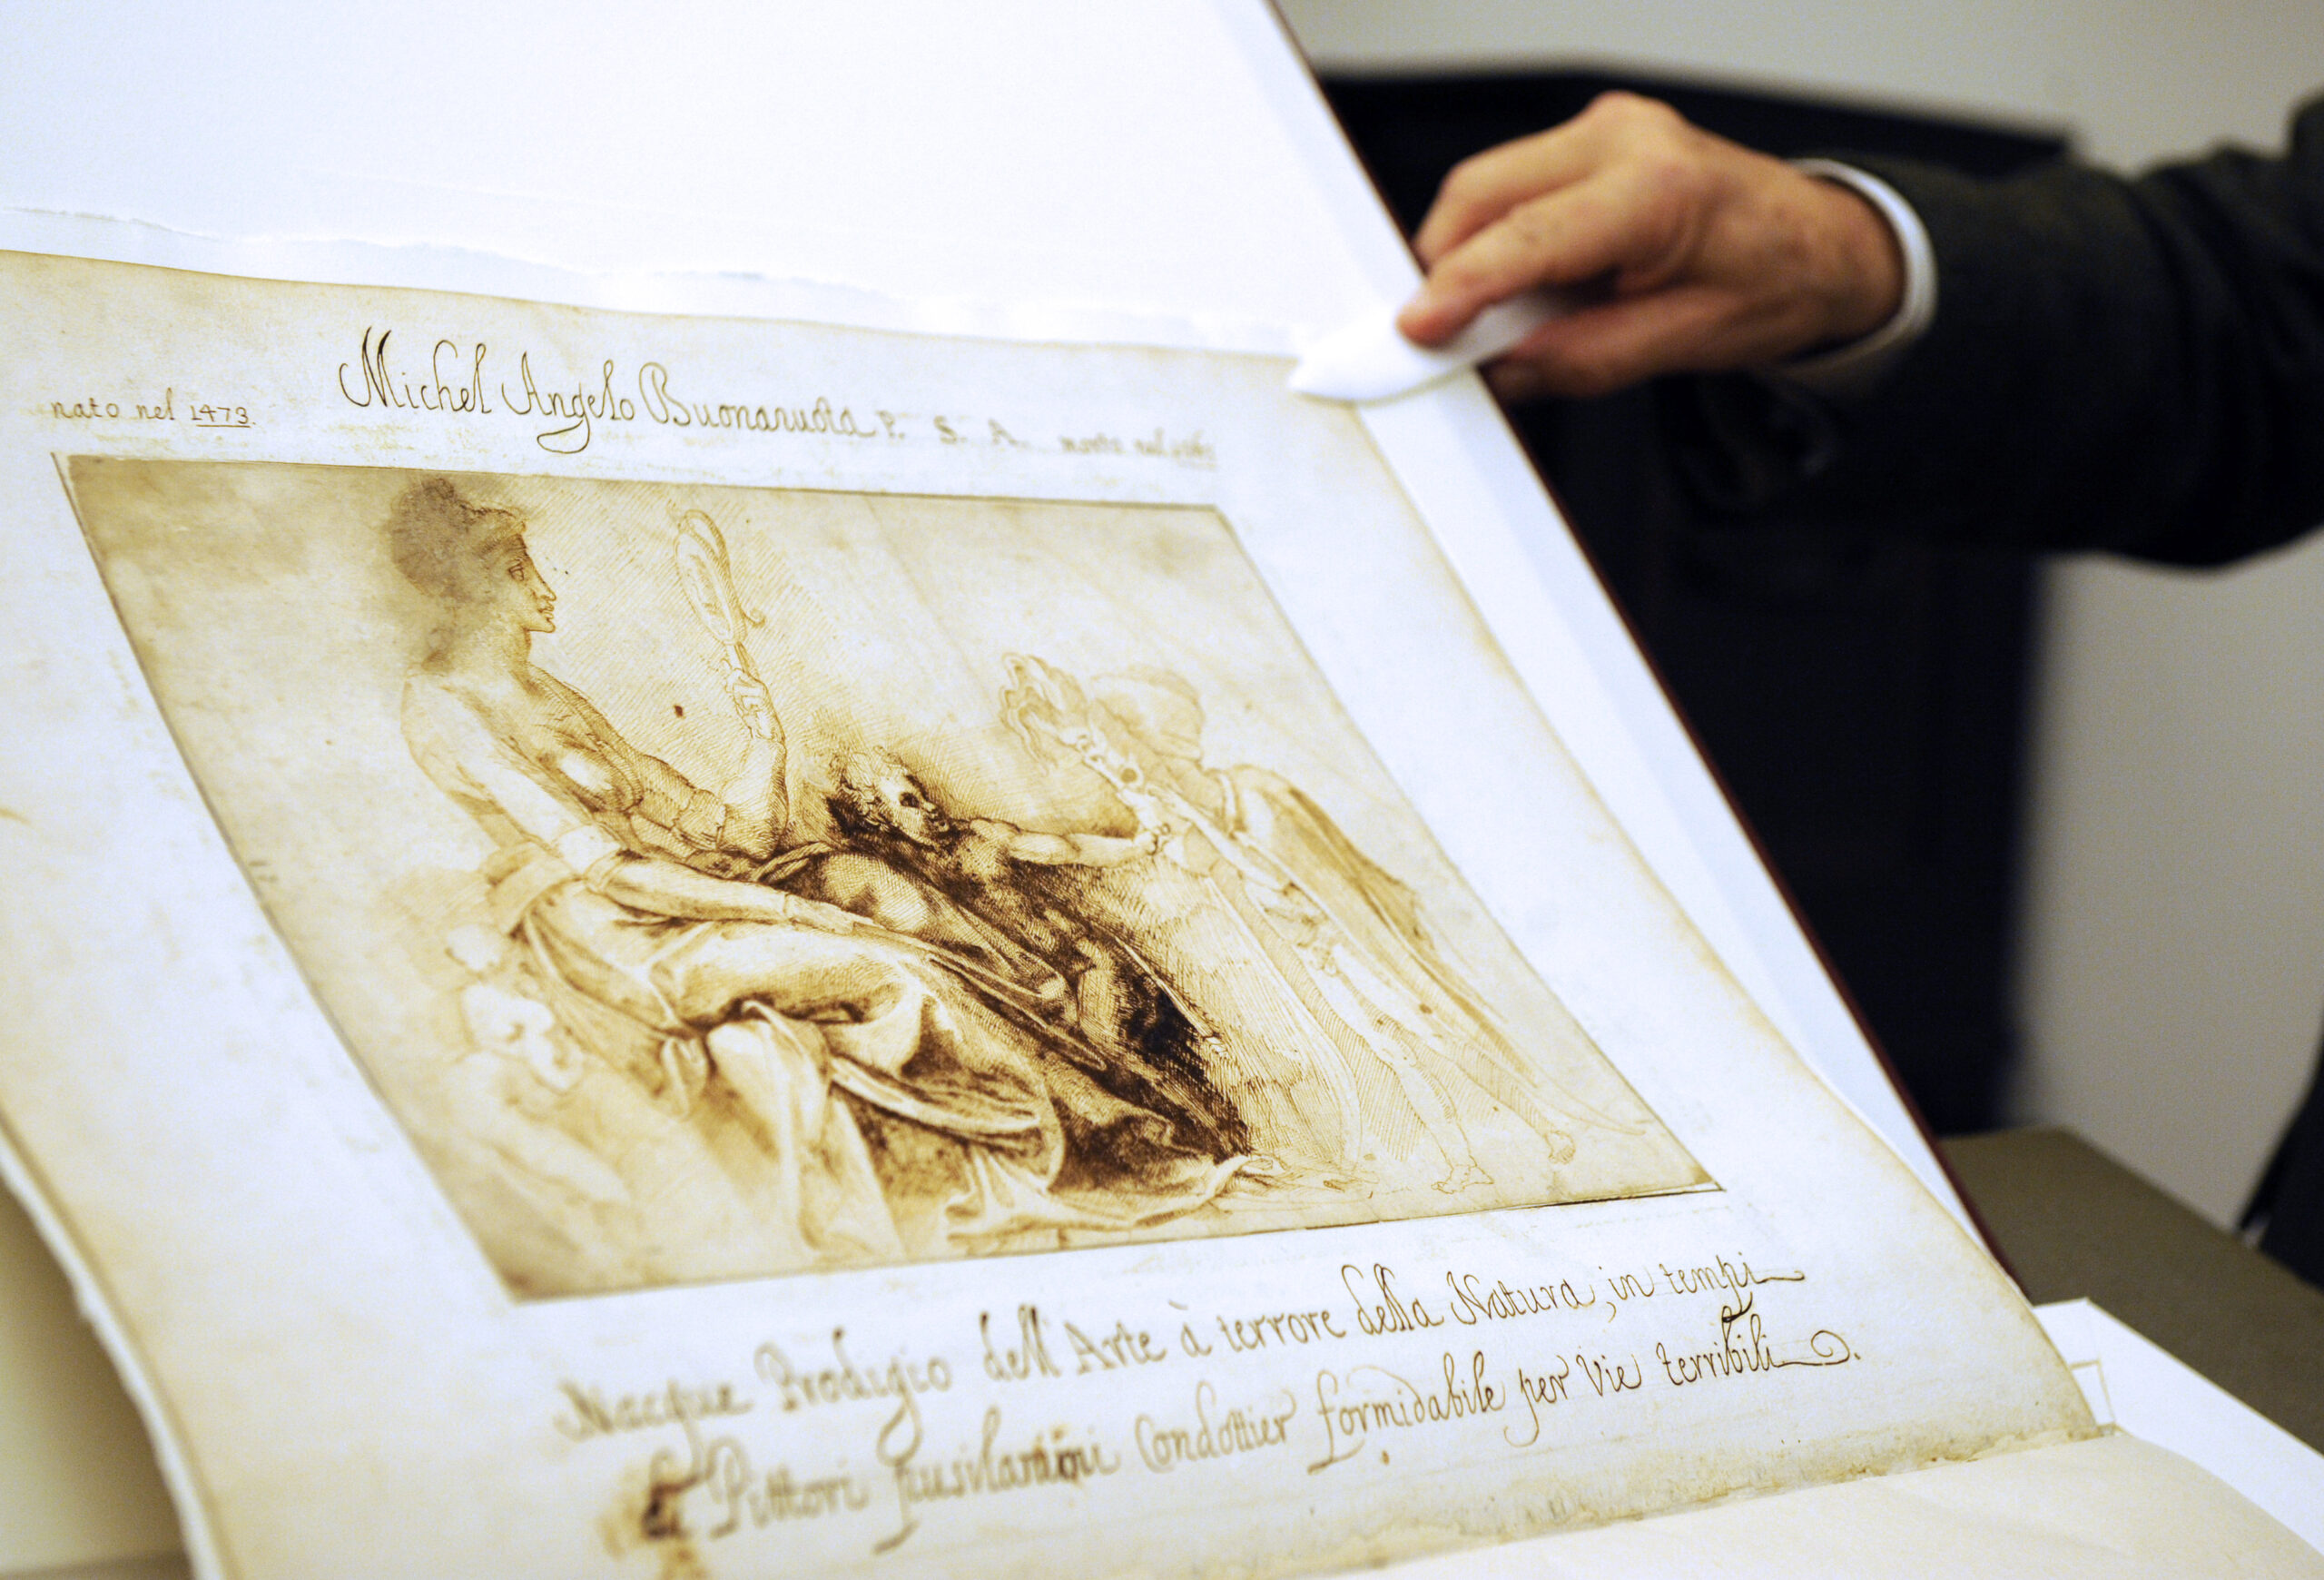 nato nel 1473. Michel Angelo Buonaruota P. S. A. morto nel
Nacque Prodigio dell'Arte à terrore della Natura, in tempi
Pittori pusilanimi Condottier formidabile per Vie terribili.